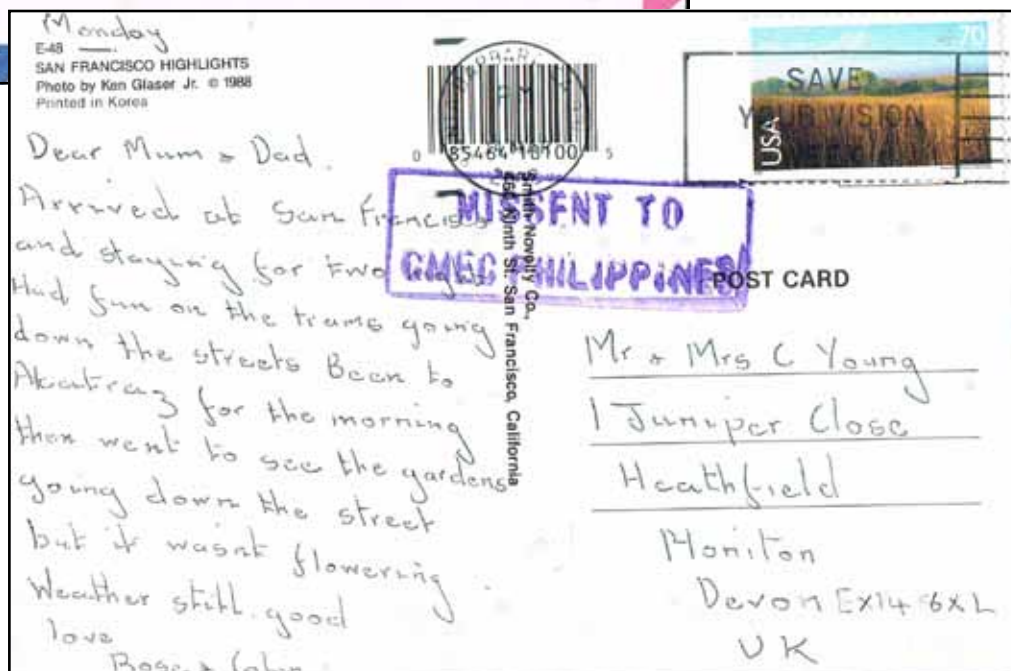 Monday
E-48
SAN FRANCISCO HIGHLIGHTS
Photo by Ken Glaser Jr. © 1988
Printed in Korea
Dear Mum & Dad.
Arrived at San Francisco
and staying for two
Had fun on the trams going
down the streets Been to
Alcatraz for the morning
then went to see the gardens
going down the street
but it wasnt flowering.
Weather still good
love
Rose &
0 85464 10100 5
MISSENT TO
CMEC PHILIPPINES
Smith Novelty Co.,
460 Ninth St. San Francisco, California
70
USA
SAVE
YOUR VISION
POST CARD
Mr & Mrs C Young
1 Juniper Close
Heathfield
Honiton
Devon EX14 8XL
UK